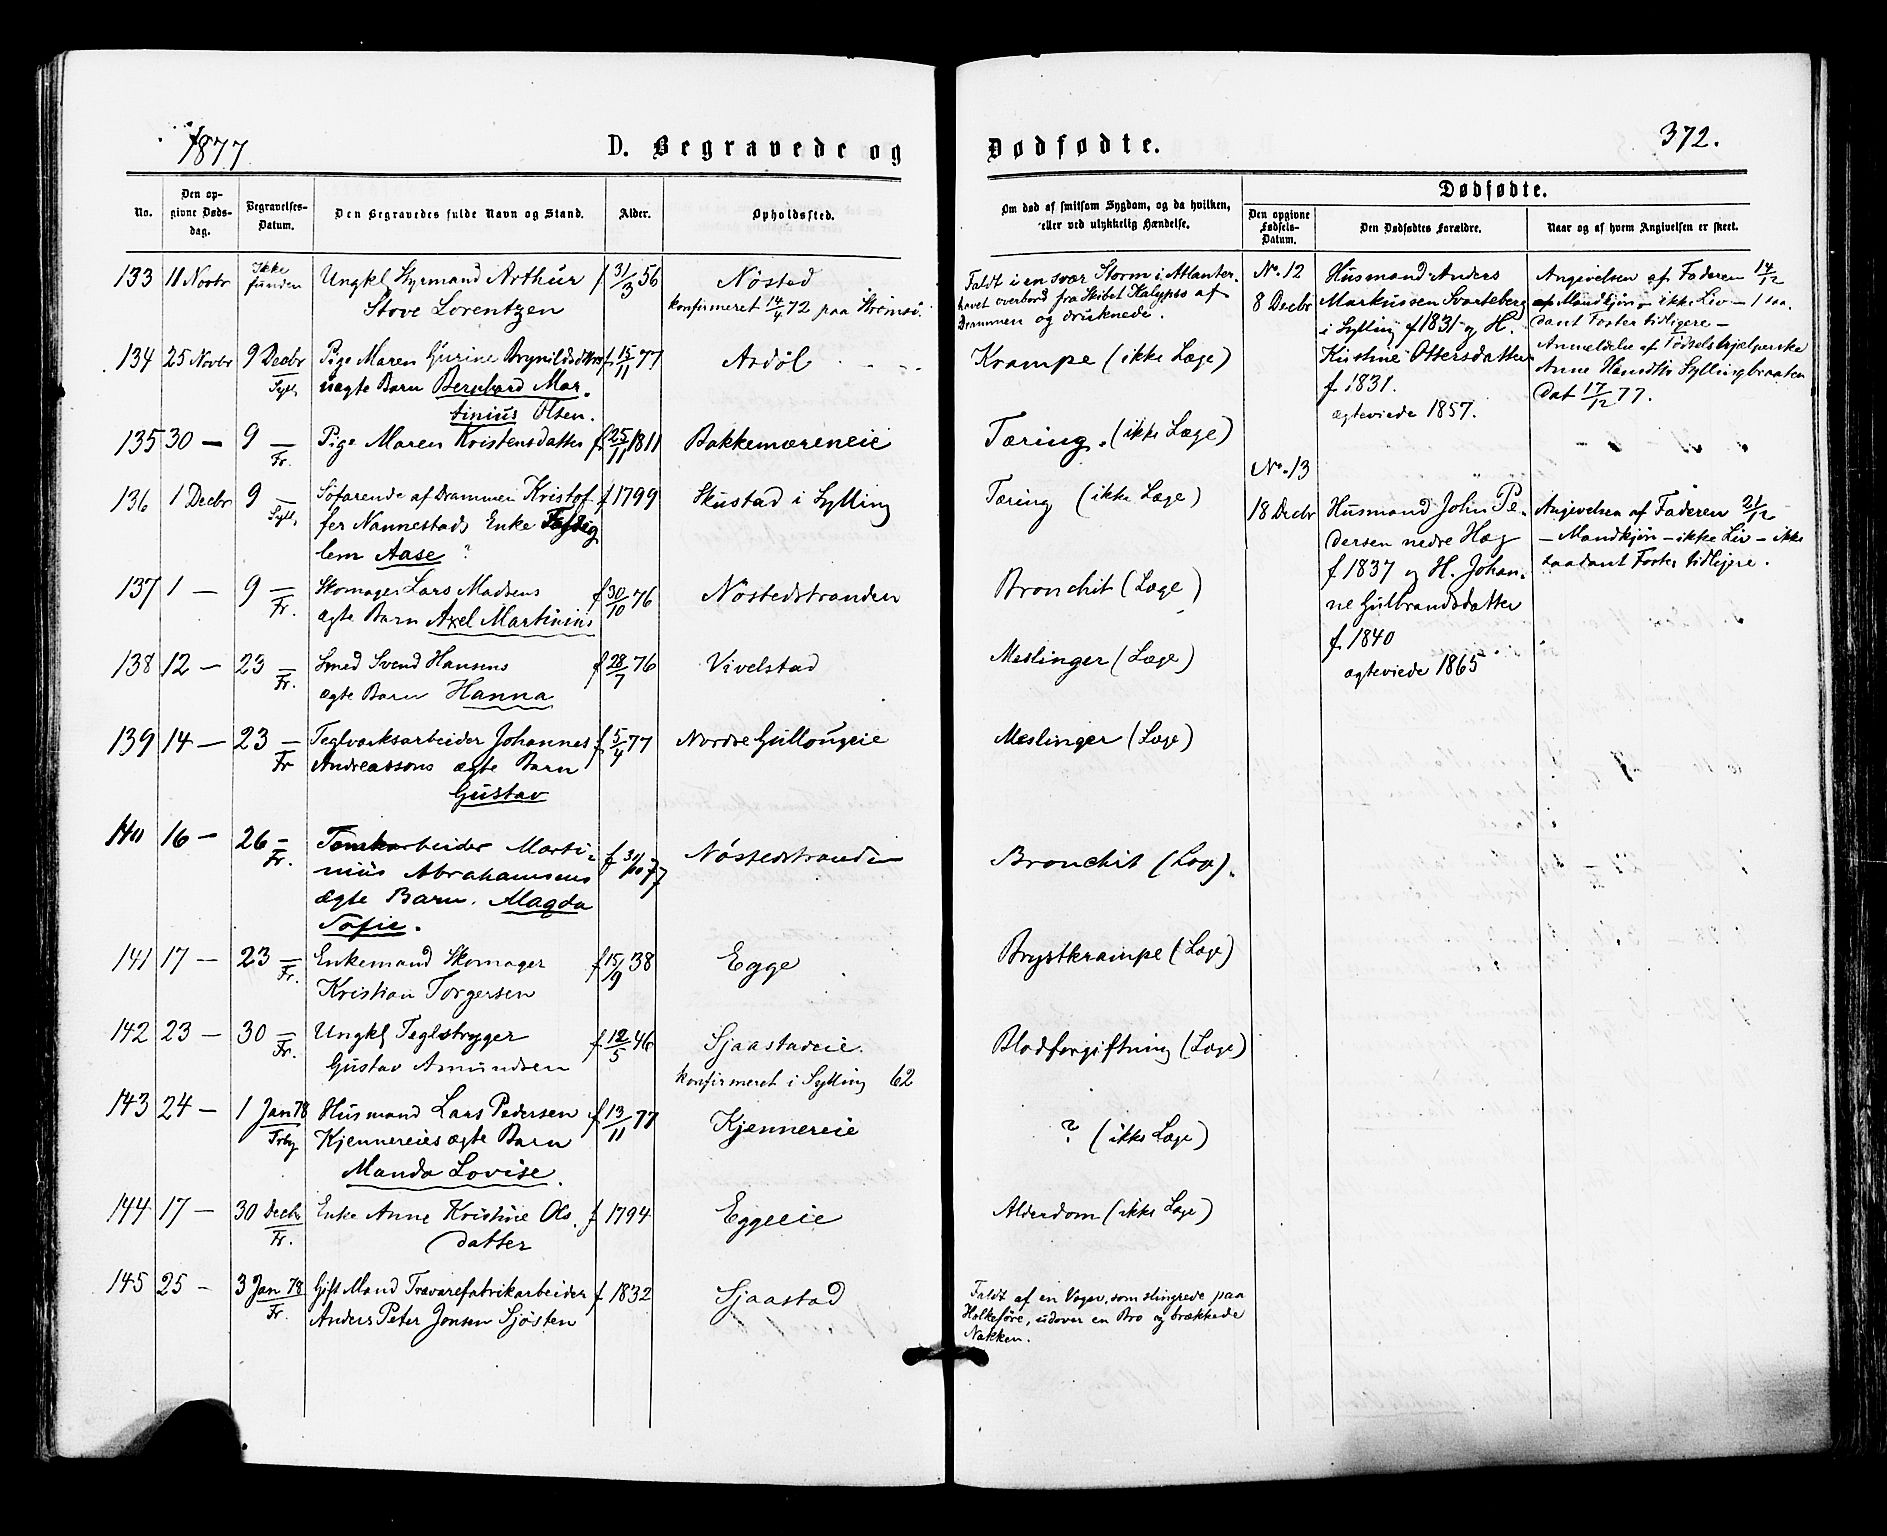 1877
D. Begravede og
Dødfødte.
372.
No.
Den op-
givne Døds-
dag.
Begravelses-
Datum.
Den Begravedes fulde Navn og Stand.
Alder.
Opholdssted.
Om død af smitsom Sygdom, og da hvilken,
eller ved ulykkelig Hændelse.
Dødfødte.
Den opgivne
Fødsels-
Datum.
Den Dødfødtes Forældre.
Naar og af hvem Angivelsen er skeet.
133 11 Novbr Ikke funden Ungkl Styrmand Arthur f 31/3 56 Nøsted
Stove Lorentzen konfirmeret 14/4 72 paa Strømsø.
Faldt i en svær Storm i Atlanter-
havet overbord fra Skibet Kalypso af
Drammen og druknede.
134 25 Novbr 9 Decbr Syll. Pige Maren Gurine Brynildsdatters f 15/11 77 Asdøl Krampe (ikke Læge)
uægte Barn Bernhard Mar-
tinius Olsen.
135 30 — 9 — Fr. Pige Maren Kristensdatter f 25/11 1811 Bakkemæreneie Tæring. (ikke Læge)
136 1 Decbr 9 — Syll. Søfarende af Drammen Kristof- f 1799 Skustad i Sylling Tæring (ikke Læge)
fer Nannestads Enke
lem Aase ?
137 1 — 9 — Fr. Skomager Lars Madsens f 30/10 76 Nøstedstranden Bronchit (Læge)
ægte Barn Axel Martinius
138 12 — 23 — Fr. Smed Svend Hansens f 28/7 76 Vivelstad Meslinger (Læge)
ægte Barn Hanna
139 14 — 23 — Fr Teglværksarbeider Johannes f 5/4 77 Nordre Gullougeie Meslinger (Læge)
Andreassons ægte Barn
Gustav
140 16 — 26 — Fr. Tomtearbeider Marti- f 31/10 77 Nøstedstranden Bronchit (Læge).
nius Abrahamsens
ægte Barn. Magda
Sofie.
141 17 — 23 — Fr. Enkemand Skomager f 15/9 38 Egge Brystkrampe (Læge)
Kristian Torgersen
142 23 — 30 — Fr. Ungkl Teglstryger f 12/5 46 Sjaastadeie. Blodforgiftning (Læge)
Gustav Amundsen konfirmeret i Sylling 62
143 24 — 1 Jan 78 Frby Husmand Lars Pedersen f 13/11 77 Kjennereie ? (ikke Læge)
Kjennereies ægte Barn
Manda Lovise.
144 17 — 30 Decbr Fr. Enke Anne Kristine Ols- f 1794 Eggeeie Alderdom (ikke Læge)
datter
145 25 — 3 Jan 78 Fr. Gift Mand Trævarefabrikarbeider f 1832 Sjaastad
Anders Peter Jonsen Sjøsten
Faldt af en Vogn, som slingrede paa
Holkeføre, udover en Bro og brækkede
Nakken.
No. 12
8 Decbr
Husmand Anders
Markussen Svarteberg
i Sylling f 1831 og H.
Kristine Ottersdatter
f 1831.
ægteviede 1857.
Angivelsen af Faderen 14/12
af Mandkjøn, ikke Liv — 1 saa-
dant Foster tidligere —
Anmeldelse af Fødselshjælperske
Anne Hansdtr Syllingbraaten
Dat 17/12 77.
No. 13
18 Decbr
Husmand John Pe-
dersen nedre Hæg
f 1837 og H. Johan-
ne Gulbrandsdatter
f 1840
ægteviede 1865
Angivelsen af Faderen 21/12
— Mandkjøn — ikke Liv — ikke
saadant Foster tidligere.